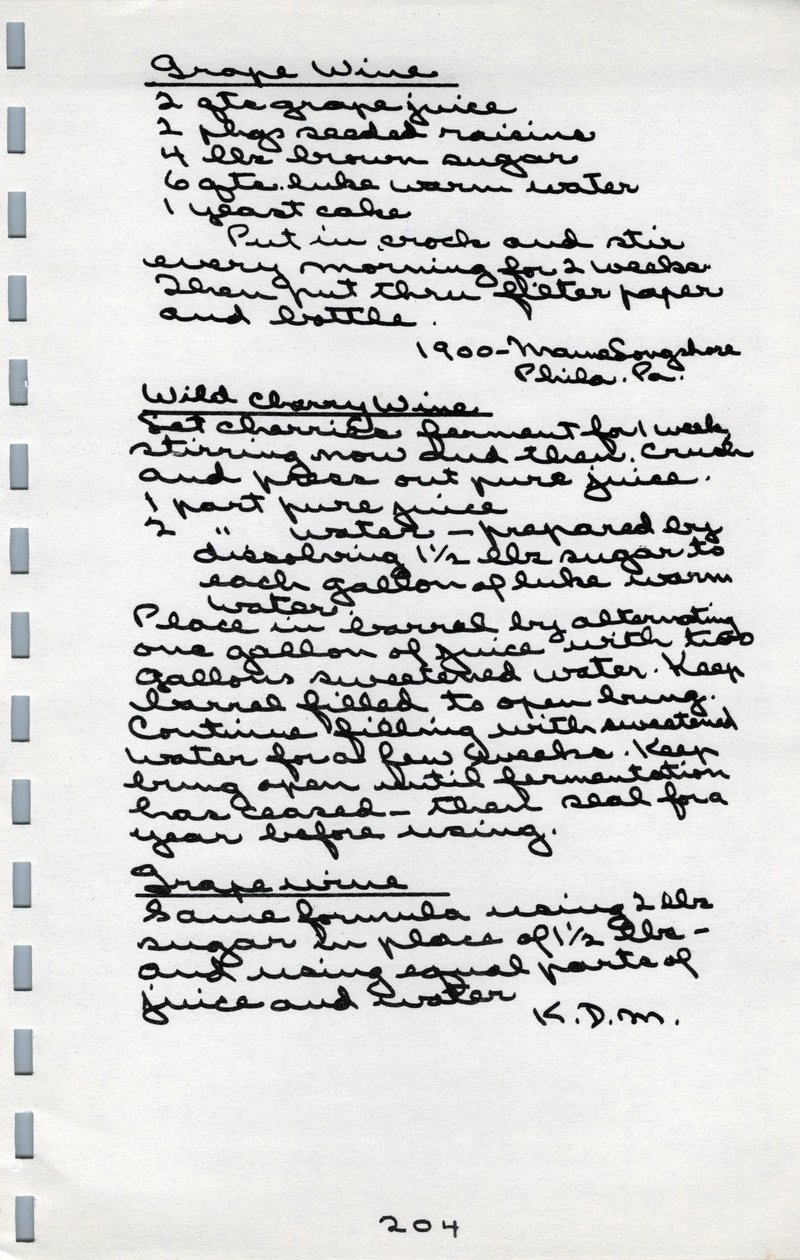 Grape Wine
2 qts grape juice
2 pkgs seeded raisins
4 lbs brown sugar
6 qts. luke warm water
1 yeast cake
Put in crock and stir
every morning for 2 weeks.
Then put thru filter paper
and bottle.
1900-Mame Longshore
Phila. Pa.
Wild Cherry Wine
Let cherries ferment for 1 week
stirring now and then. Crush
and press out pure juice.
1 part pure juice
2 " water - prepared by
dissolving 1½ lbs sugar to
each gallon of luke warm
water.
Place in barrel by alternating
one gallon of juice with two
gallons sweetened water. Keep
barrel filled to open bung.
Continue filling with sweetened
water for a few weeks. Keep
bung open until fermentation
has ceased - then seal for a
year before using.
Grape wine
Same formula using 2 lbs
sugar in place of 1½ lbs -
and using equal parts of
juice and water
K.D.M.
204